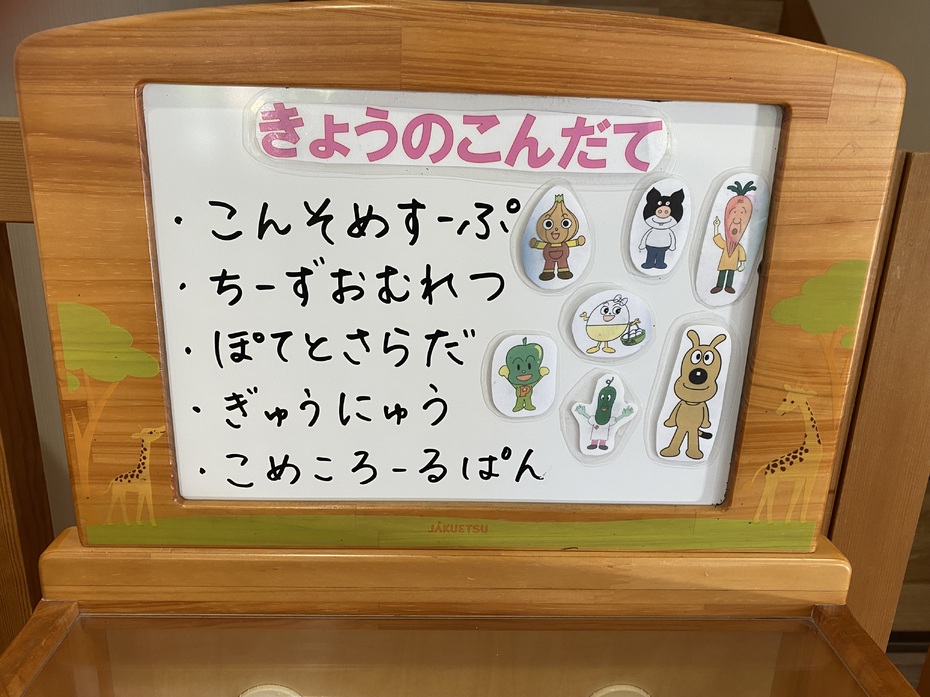 きょうのこんだて
・こんそめすーぷ
・ちーずおむれつ
・ぽてとさらだ
・ぎゅうにゅう
・こめころーるぱん
JAKUETSU